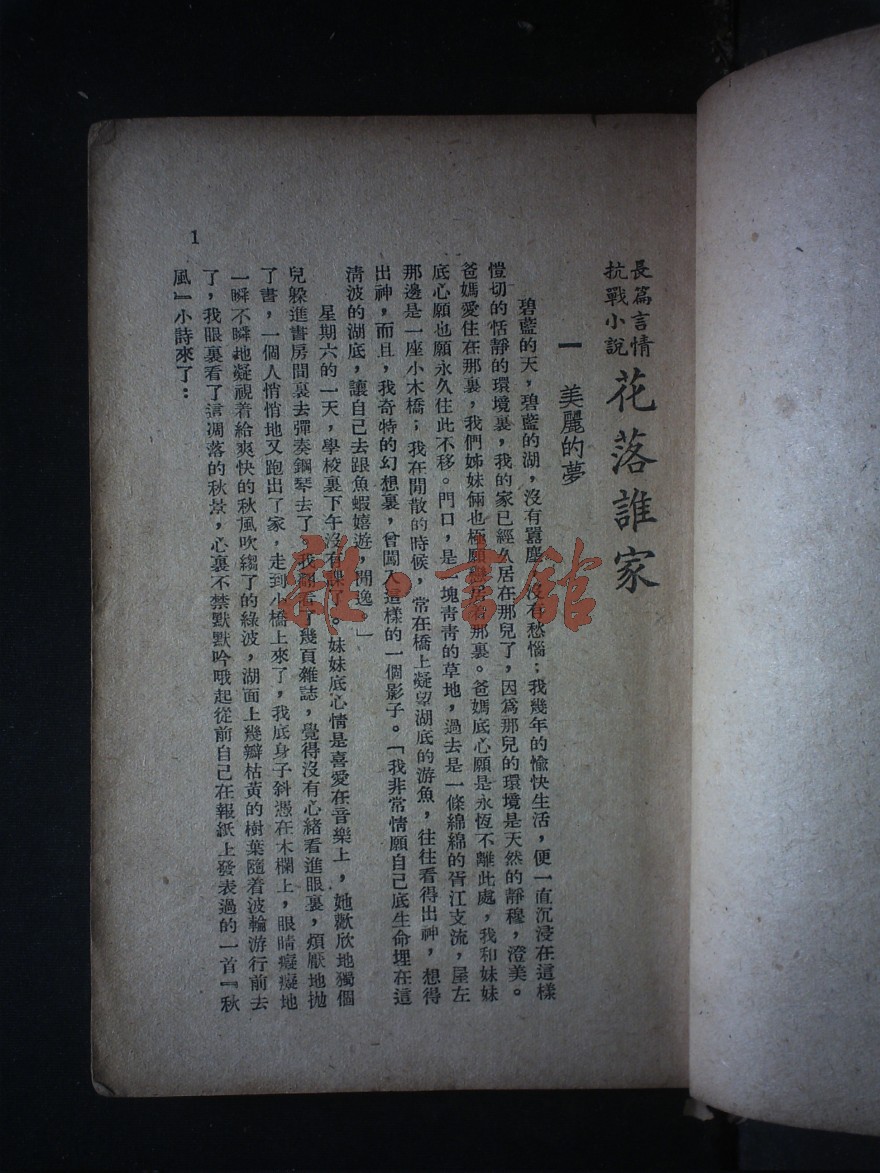 長篇言情
抗戰小說
花落誰家
一 美麗的夢
碧藍的天，碧藍的湖，沒有囂塵，沒有愁惱；我幾年的愉快生活，便一直沉浸在這樣
愷切的恬靜的環境裏，我的家已經久居在那兒了，因爲那兒的環境是天然的靜穆，澄美。
爸媽愛住在那裏，我們姊妹倆也極願 居 那裏。爸媽底心願是永恆不離此處，我和妹妹
底心願也願永久住此不移。門口，是一塊靑靑的草地，過去是一條綿綿的胥江支流，屋左
那邊是一座小木橋；我在閒散的時候，常在橋上凝望湖底的游魚，往往看得出神，想得
出神，而且，我奇特的幻想裏，曾闖入這樣的一個影子。「我非常情願自己底生命埋在這
淸波的湖底，讓自己去跟魚蝦嬉遊，閒逸。」
星期六的一天，學校裏下午沒有課了。妹妹底心情是喜愛在音樂上，她歡欣地獨個
兒躲進書房間裏去彈奏鋼琴去了，我翻看了幾頁雜誌，覺得沒有心緖看進眼裏，煩厭地拋
了書，一個人悄悄地又跑出了家，走到小橋上來了，我底身子斜憑在木欄上，眼睛癡癡地
一瞬不瞬地凝視着給爽快的秋風吹縐了的綠波，湖面上幾瓣枯黃的樹葉隨着波輪游行前去
了，我眼裏看了這凋落的秋景，心裏不禁默默吟哦起從前自己在報紙上發表過的一首『秋
風』小詩來了：
1
雜·書館